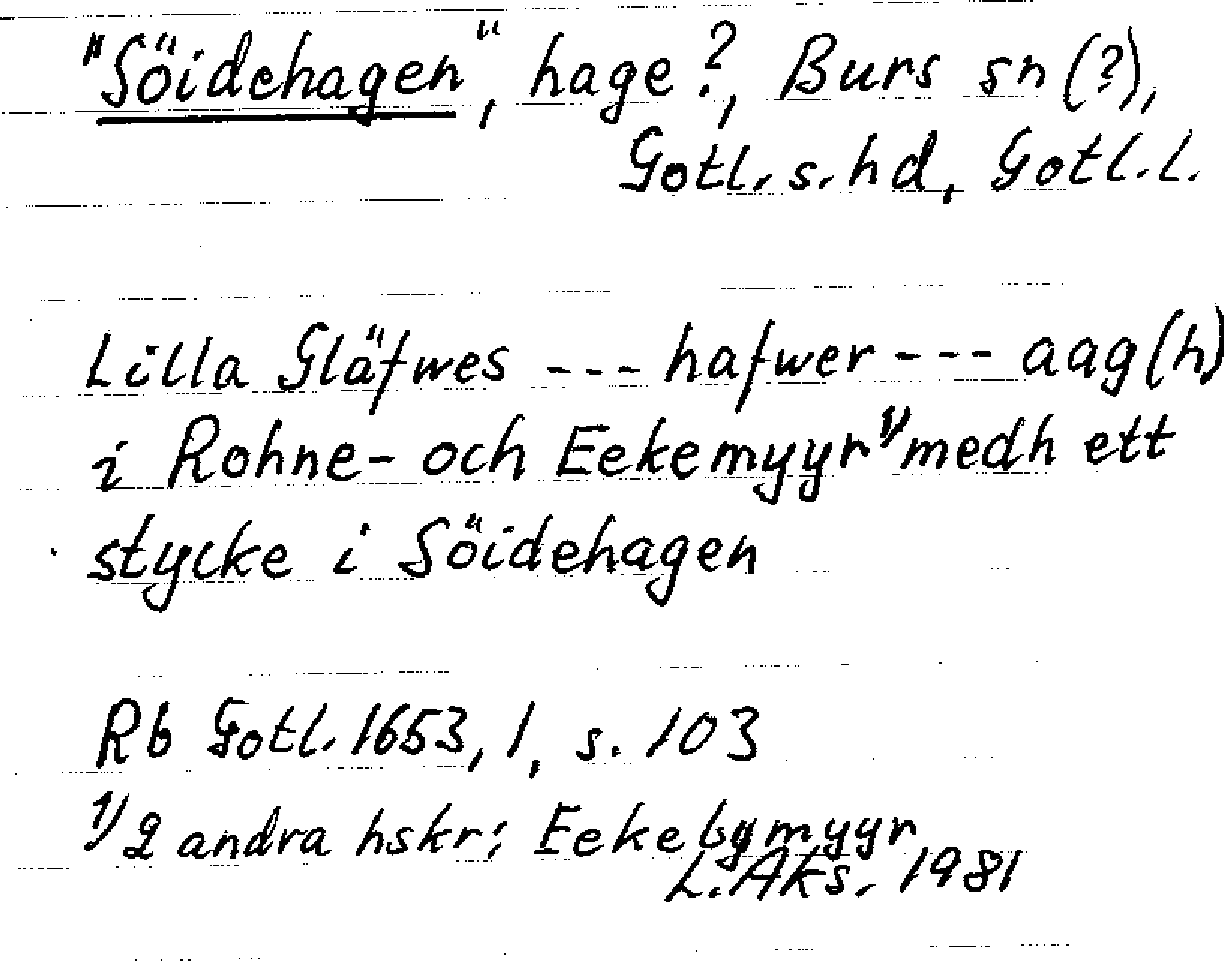 "Söidehagen", hage?, Burs sn (?),
Gotl. s. hd, Gotl. l.
Lilla Gläfwes --- hafwer --- aag(h)
i Rohne- och Eekemyyr 1/ medh ett
stycke i Söidehagen
Rb Gotl. 1653, 1, s. 103
1/ 2 andra hskr: Eekebymyyr
L. Aks. 1981